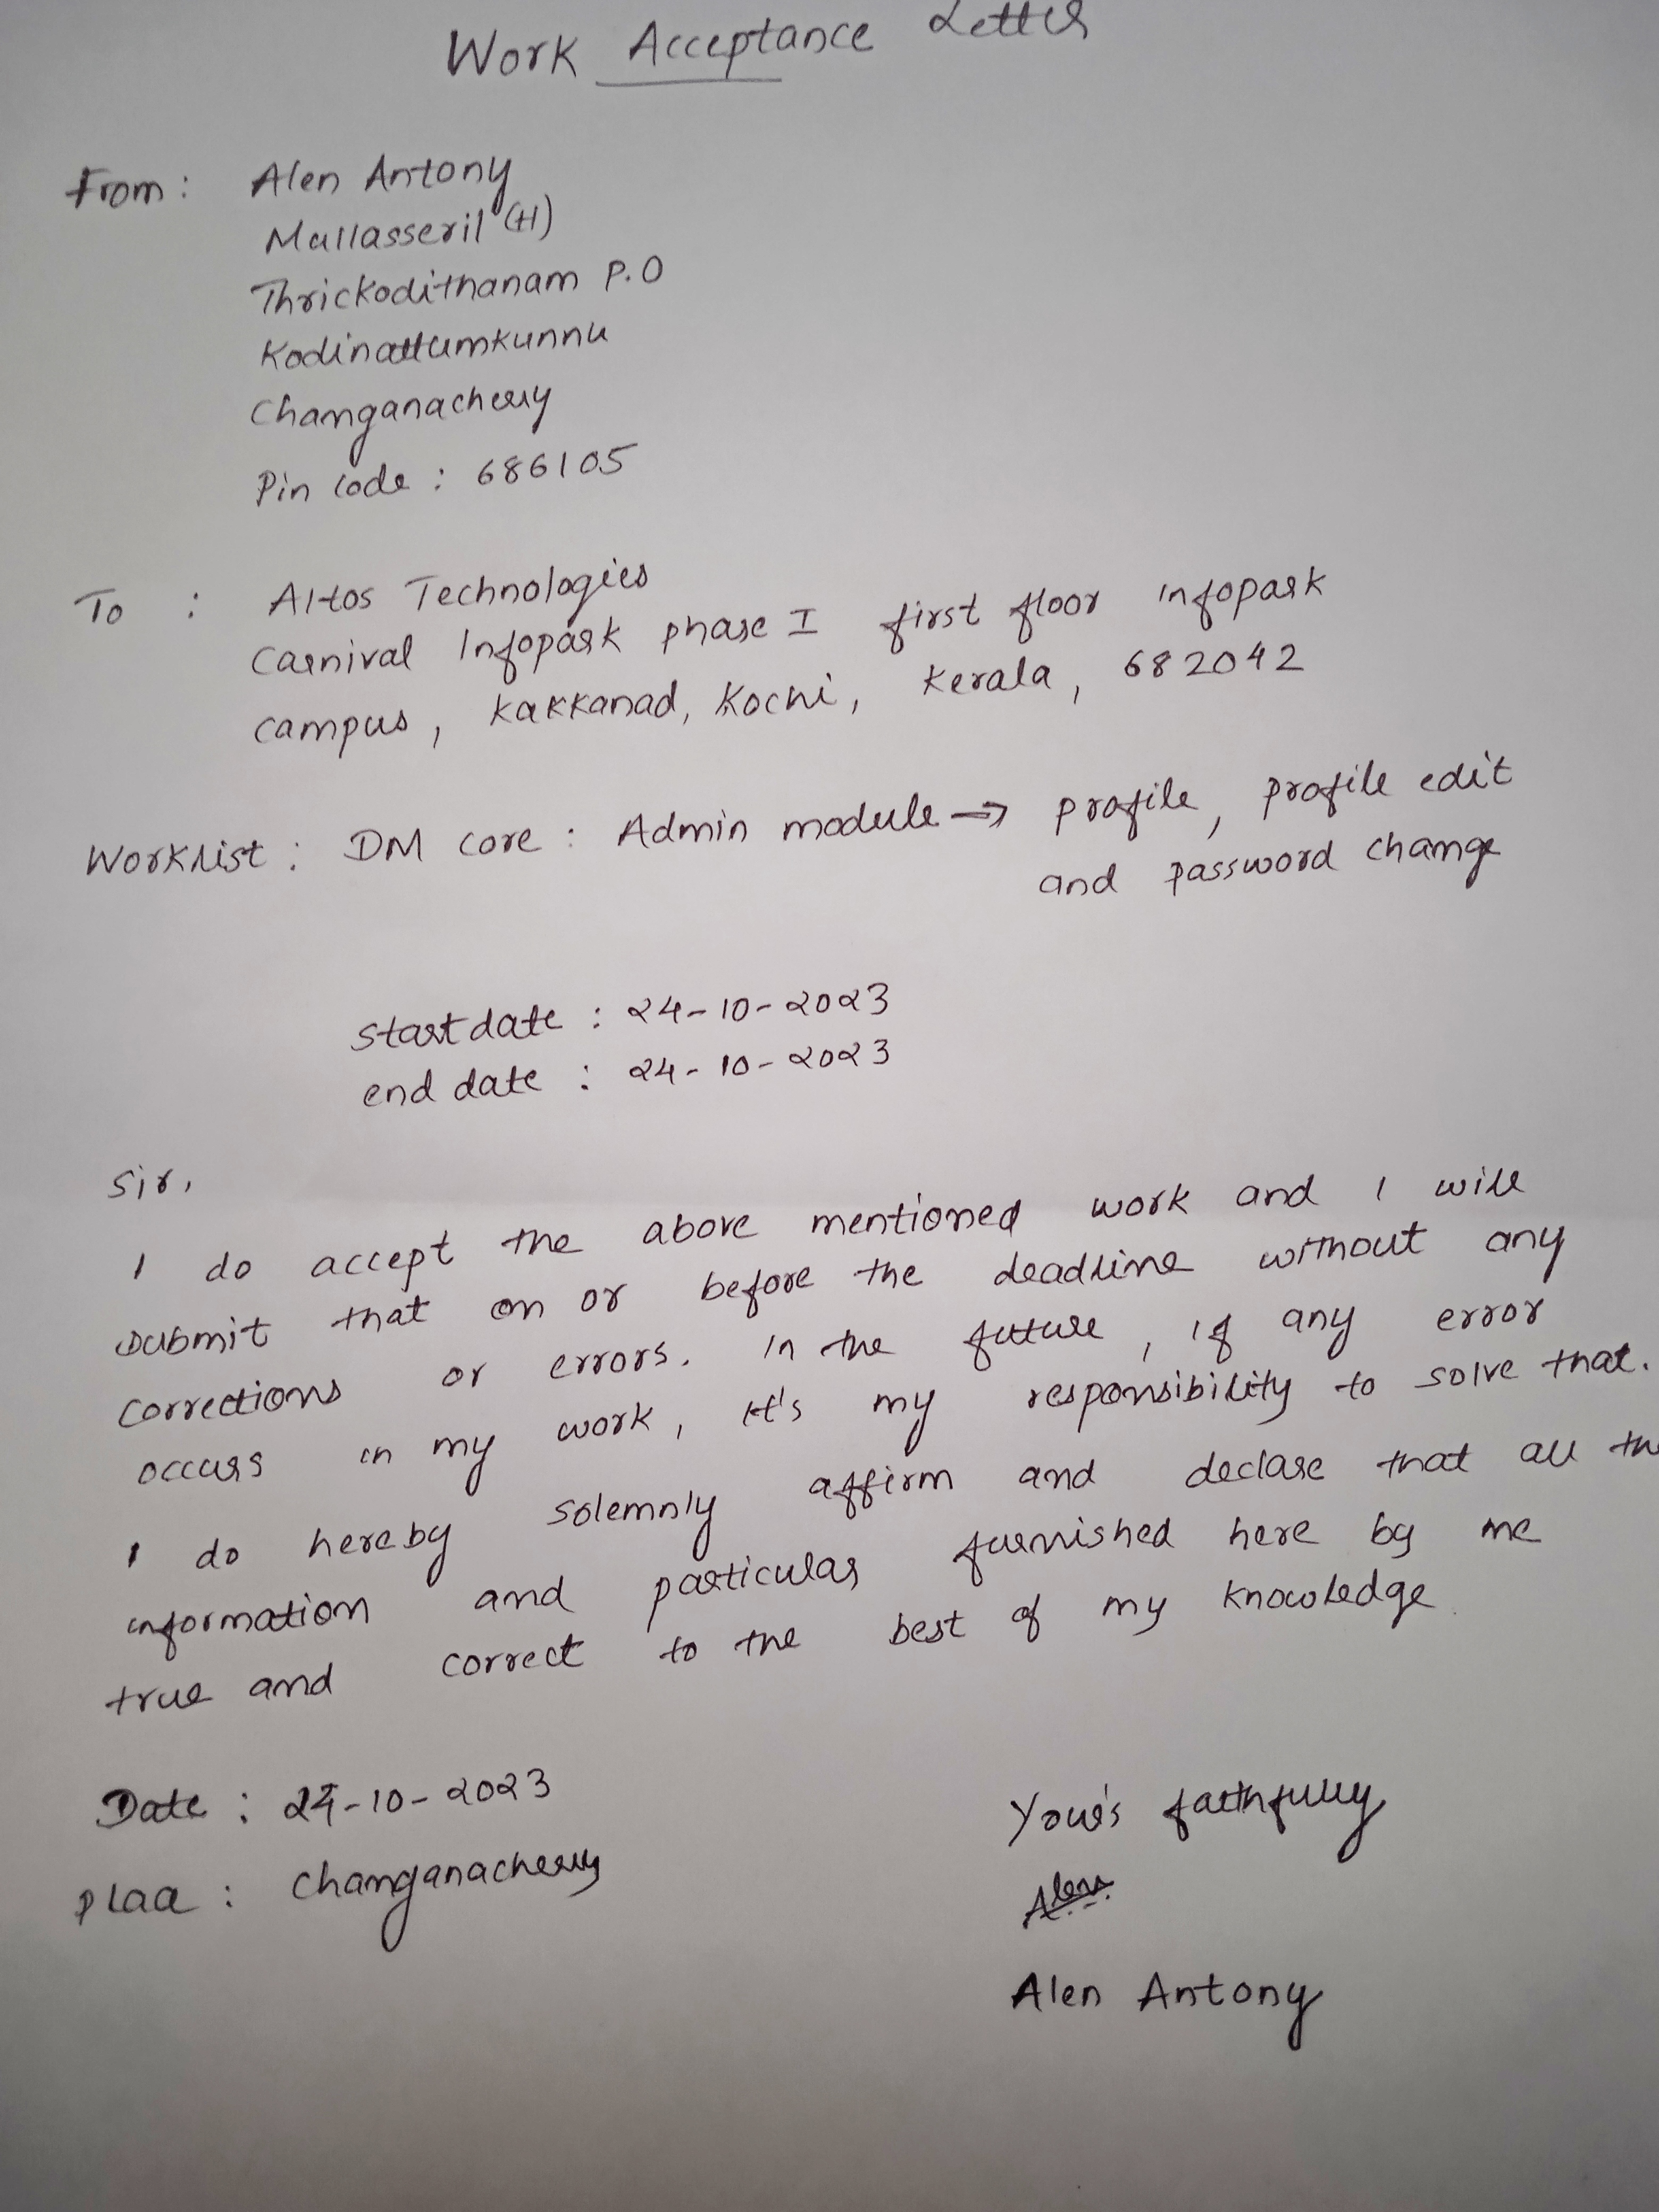 Work Acceptance Letter
From : Alen Antony
Mallasseril (H)
Thrickodithanam P.O
Kodinattumkunnu
Changanacherry
Pin code : 686105
To : Altos Technologies
Carnival Infopark phase I first floor infopark
campus, Kakkanad, Kochi, Kerala, 682042
Worklist : DM core : Admin module → profile, profile edit
and password change
start date : 24-10-2023
end date : 24-10-2023
Sir,
I do accept the above mentioned work and I will
submit that on or before the deadline without any
corrections or errors. In the future, if any error
occurs in my work, it's my responsibility to solve that.
I do hereby solemnly affirm and declare that all the
information and particular furnished here by me
true and correct to the best of my knowledge.
Date : 24-10-2023
Place : Changanacherry
Your's faithfully
Alen
Alen Antony